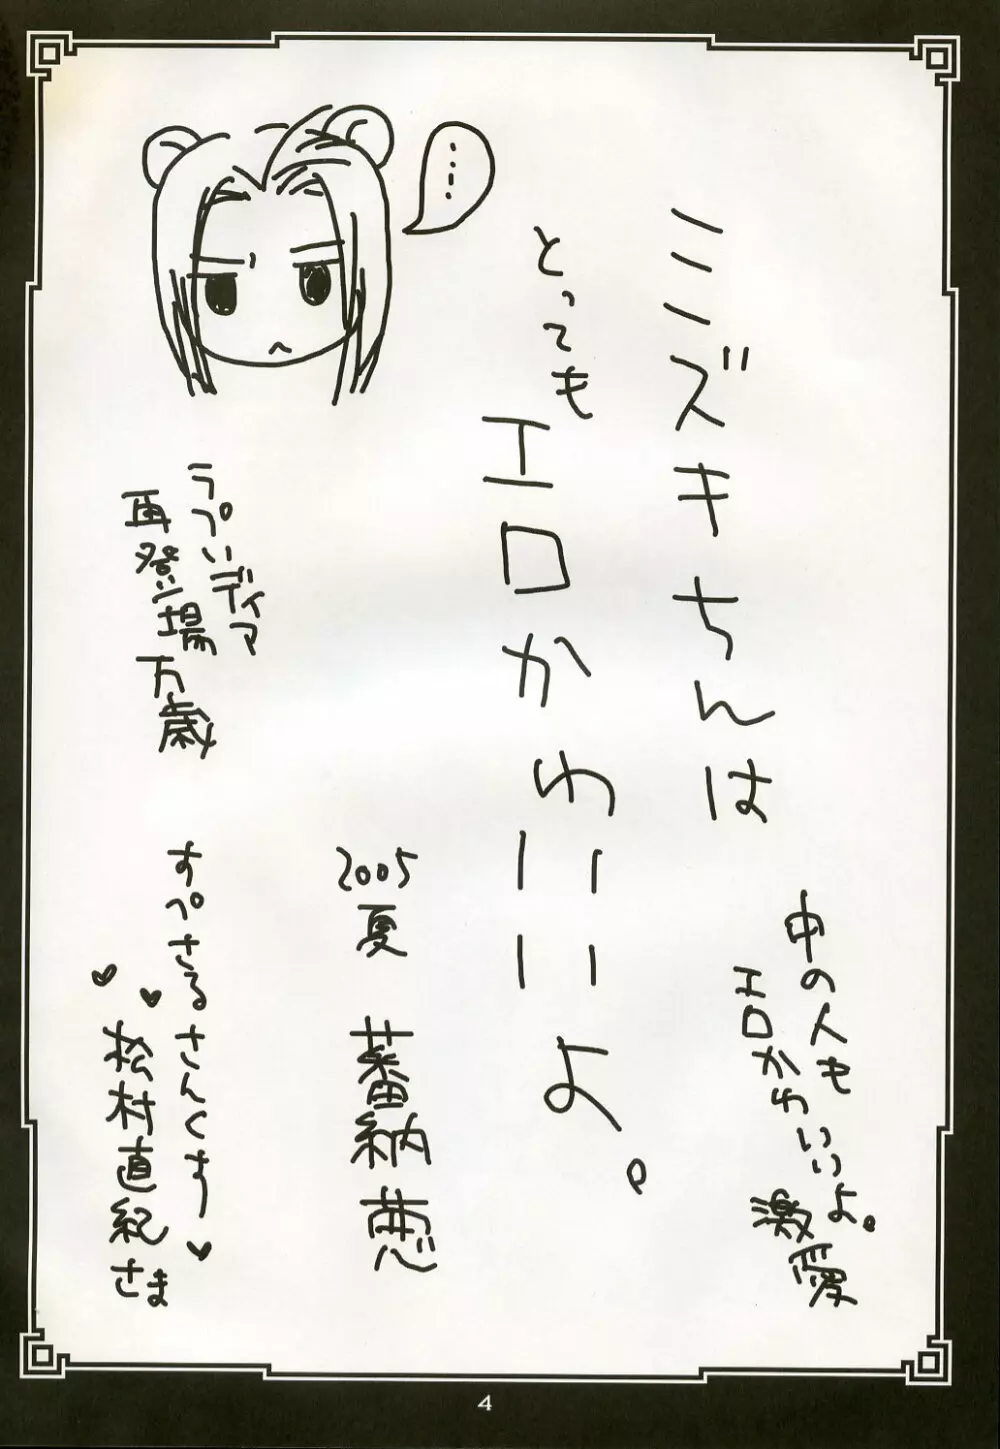 ミズキちんは
とっても
エロかわいいよ。
中の人も
エロかわいいよ。
激愛
‥‥
2005夏 蕃納葱
ラプいディア
再登場万歳
すぺさるさんくす♥
♥♥松村直紀さま
4